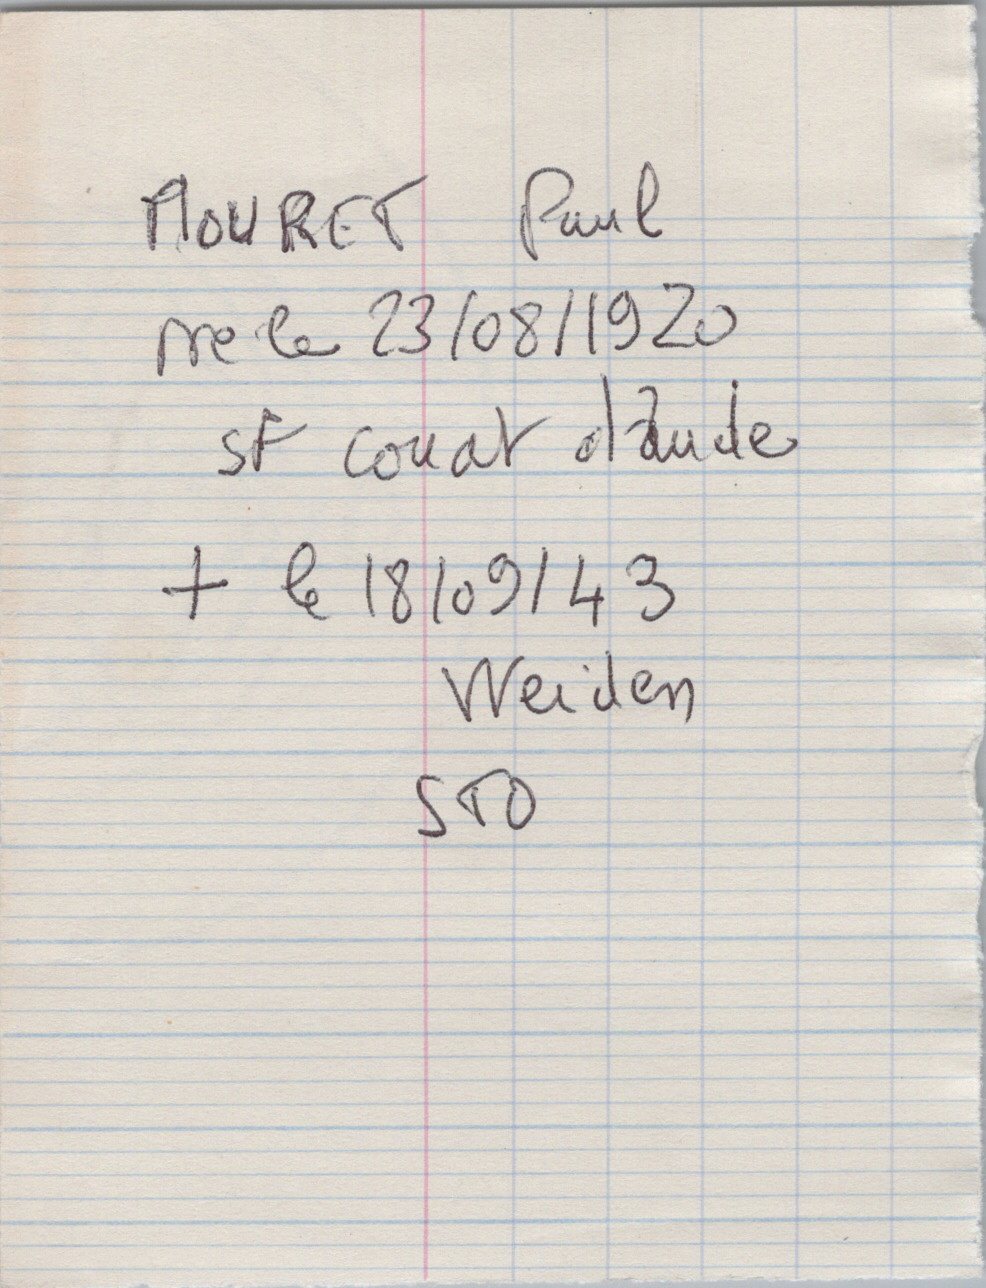 MOURET Paul
ne le 23/08/1920
st couat d'aude
+ le 18/09/43
Weiden
STO